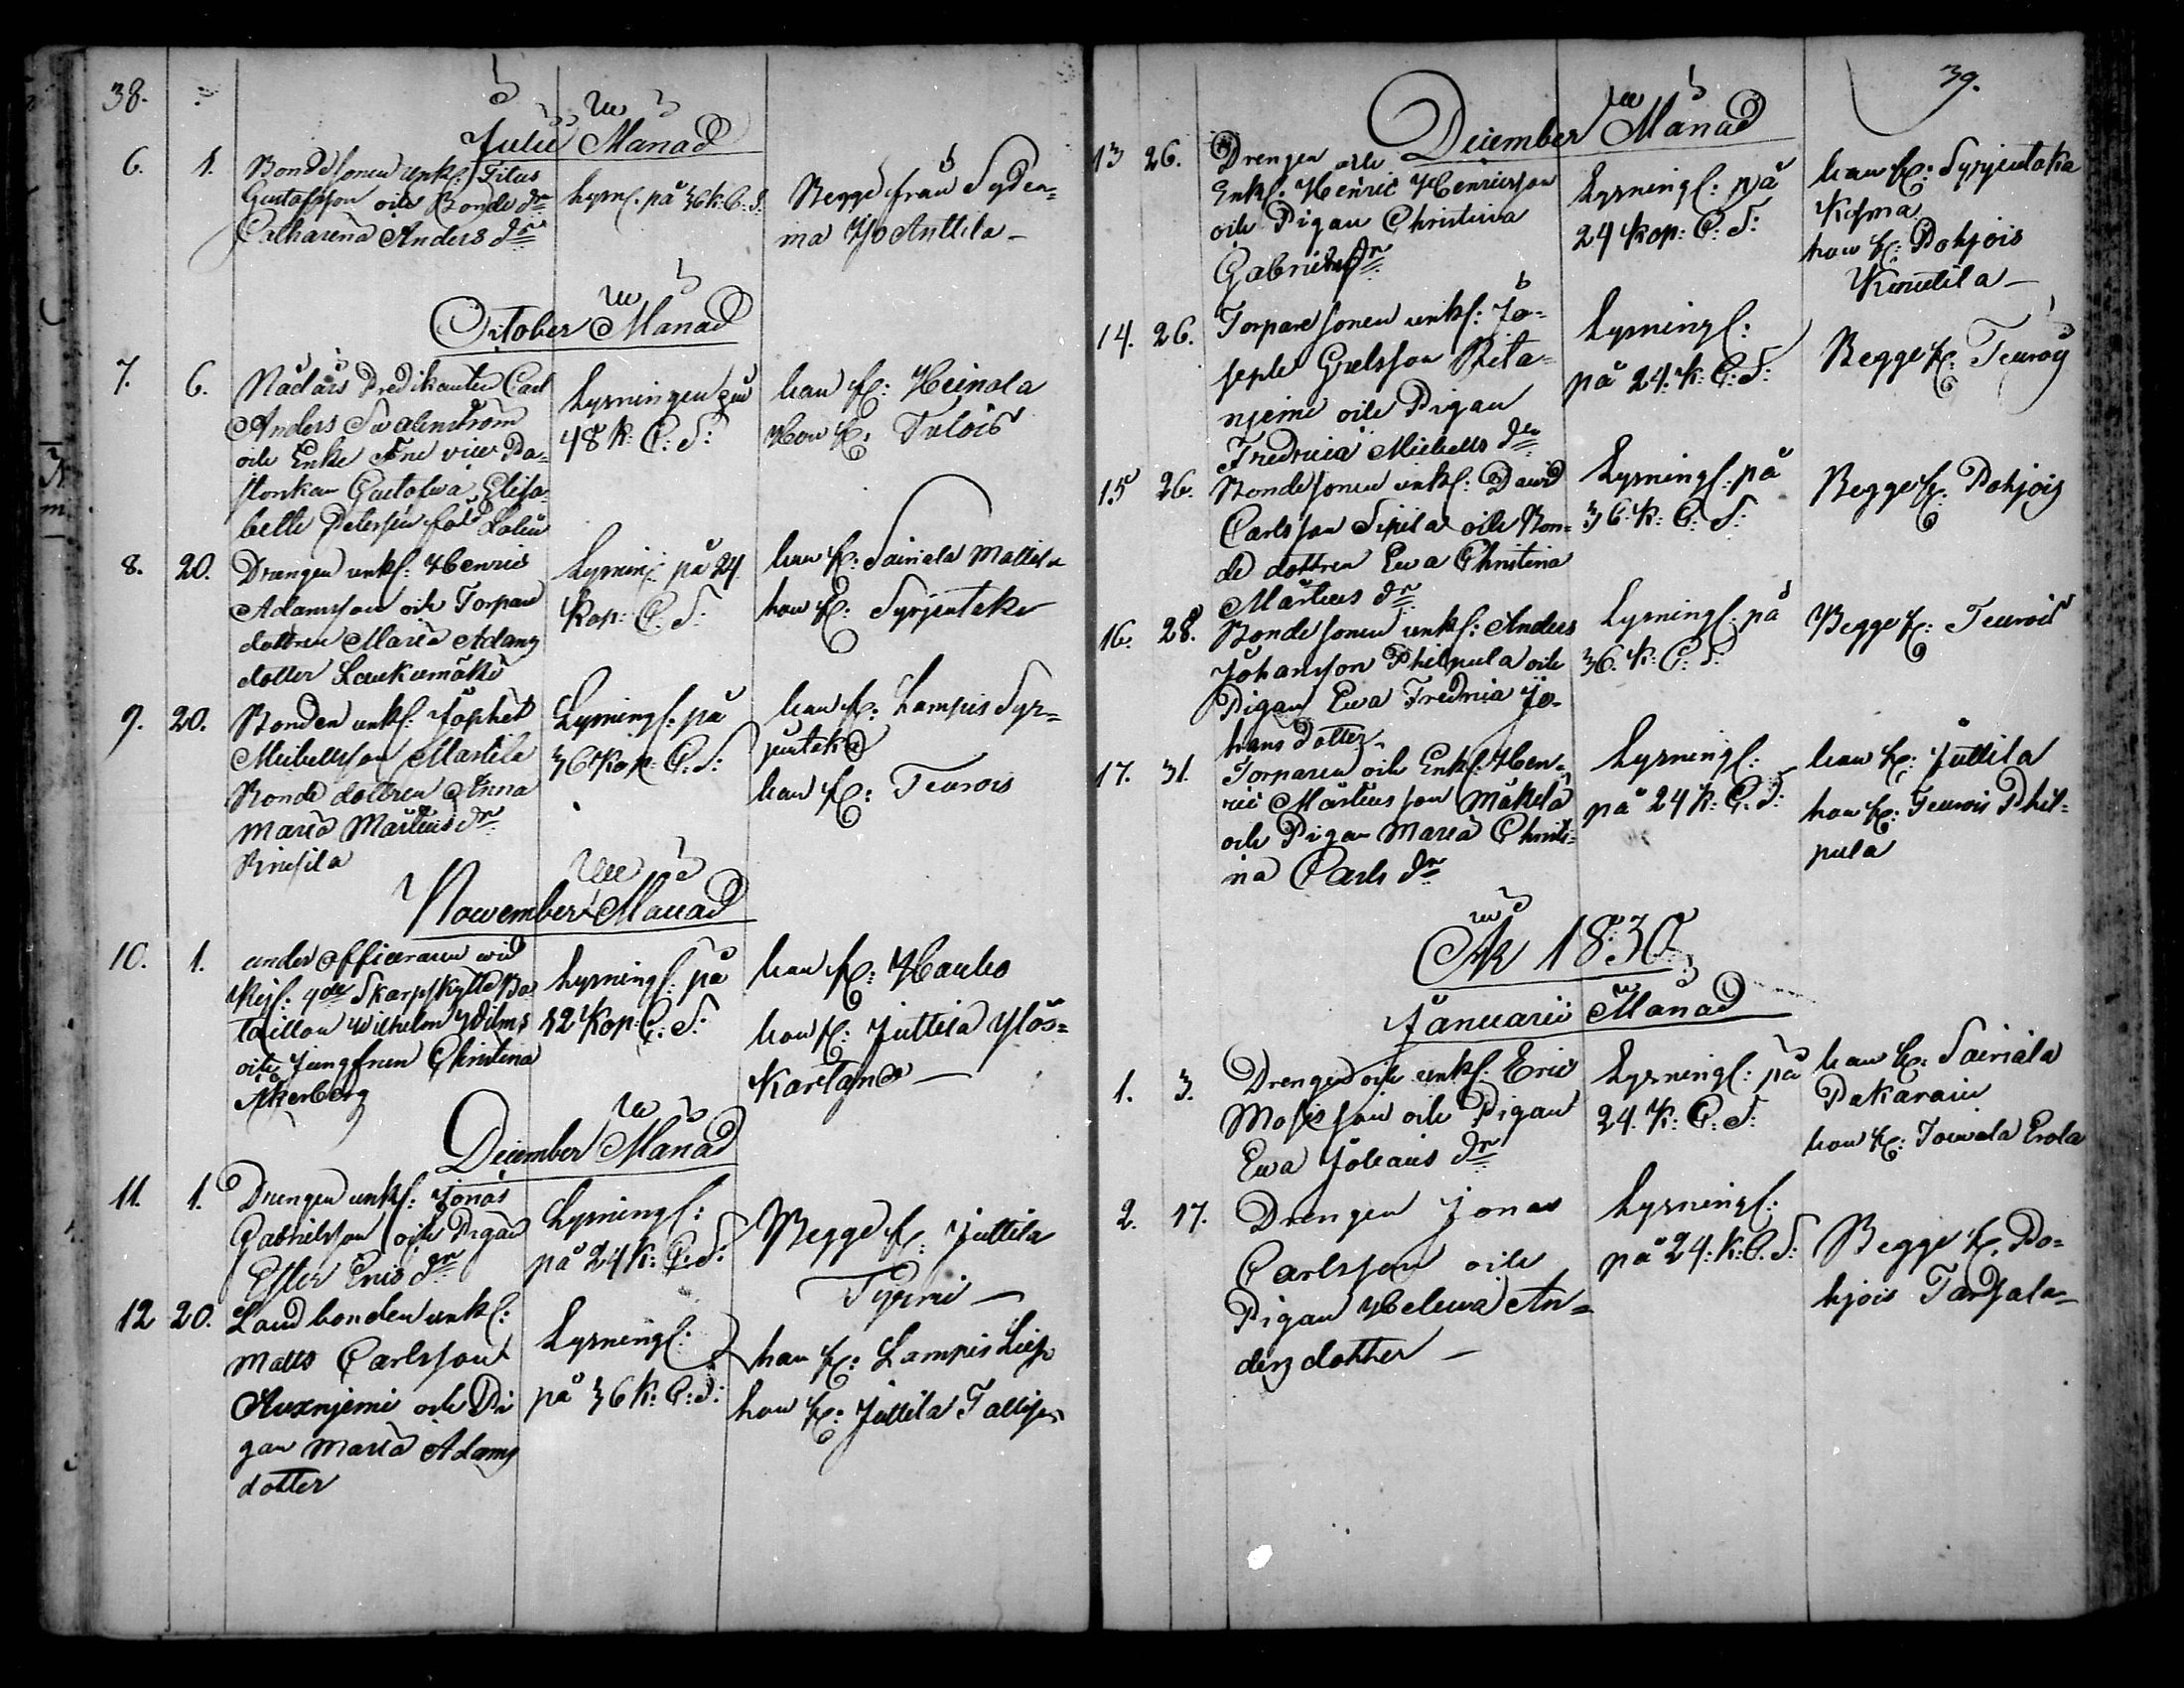 38.
Julii Månad
6. 1. Bonde sonen unkf: Titus
Gustafsson och Bonde dr
Catharina Anders dr
Lysn: på 36 k. C. S:
Begge från Syden=
ma Yso Anttila —
October Månad
7. 6. Nådårs Predikanten Carl
Anders
och Enke Frue vice Pa=
storskan Gustafwa Elisa
beth Petersen föd
Lysningen på
48 k: C: S:
han fr: Heinola
Hon fr: Tulois
8. 20. Drengen unkf: Henric
Adamsson och Torpare
dottren Maria Adams
dotter Laukumäki
Lysning på 24
Kop: C. S:
han fr: Sairiala Mattila
hon fr: Syrjentaka
9. 20. Bonden unkf: Japhet
Michelsson Martila
Bonde dottren Anna
Maria Mårtens dr
Lysningf: på
36 Kop: C: S:
han fr: Lampis Syr=
jentaka
hon fr: Teurois
November Månad
10. 1. under officeraren wid
Kejs: 4de Skarpskytte Ba
taillon Wilhelm Wilms
och Jungfrun Christina
Åkerberg
Lysningf: på
Kop: C. S:
han fr: Hauho
hon fr: Juttila Ylös=
Kartano —
December Månad
11. 1. Drengen unkf: Jonas
Gabrielsson och Pigan
Ester Erics dr
Lysningf:
på 24 K: C: S:
Begge fr: Juttila
Tyrni —
12 20. Landbonden unkf:
Matts Carlsson
Auxnjemi och Pi
gan Maria Adams
dotter
Lysningf:
på 36 K: C: S:
han fr: Lampis
hon fr: Juttila
39.
December Månad
13 26. Drengen och
Enkf. Henric Henricsson
och Pigan Christina
Gabriels dr
Lysningf: på
24 Kop: C: S:
han fr: Syrjentaka
Kosma
hon fr: Pohjois
Knutila —
14. 26. Torpare sonen unkf: Jo=
seph Grelsson Rita=
njemi och Pigan
Fredrica Michells dr
Lysningf:
på 24. K: C: S:
Begge fr: Teuroi
15 26. Bonde sonen unkf: David
Carlsson Sipilä och Bon=
de dottren Ewa Christina
Mårtens dr
Lysningf: på
36. K: C. S:
Begge fr: Pohjois
16. 28. Bonde sonen unkf: Anders
Johansson Philpula och
Pigan Ewa Fredrica Jo-
hans dotter
Lysningf: på
36. K: C: S:
Begge fr: Teurois
17. 31. Torparen och Enkf: Hen-
ric Mårtensson Mäkelä
och Pigan Maria Christi=
na Carls dr
Lysningf:
på 24 K: C. S:
han fr: Juttila
hon fr: Teurois Phil-
pula
År 1830.
Januarii Månad
1. 3. Drengen och unkf: Eric
Mosisson och Pigan
Ewa Johans dr
Lysningf: på
24. K: C. S:
han fr: Sairiala
Pakarain
hon fr: Toivala Erola
2. 17. Drengen Jonas
Carlsson och
Pigan Helena An=
ders dotter —
Lysningf:
på 24: K: C. S:
Begge fr. Po=
hjois